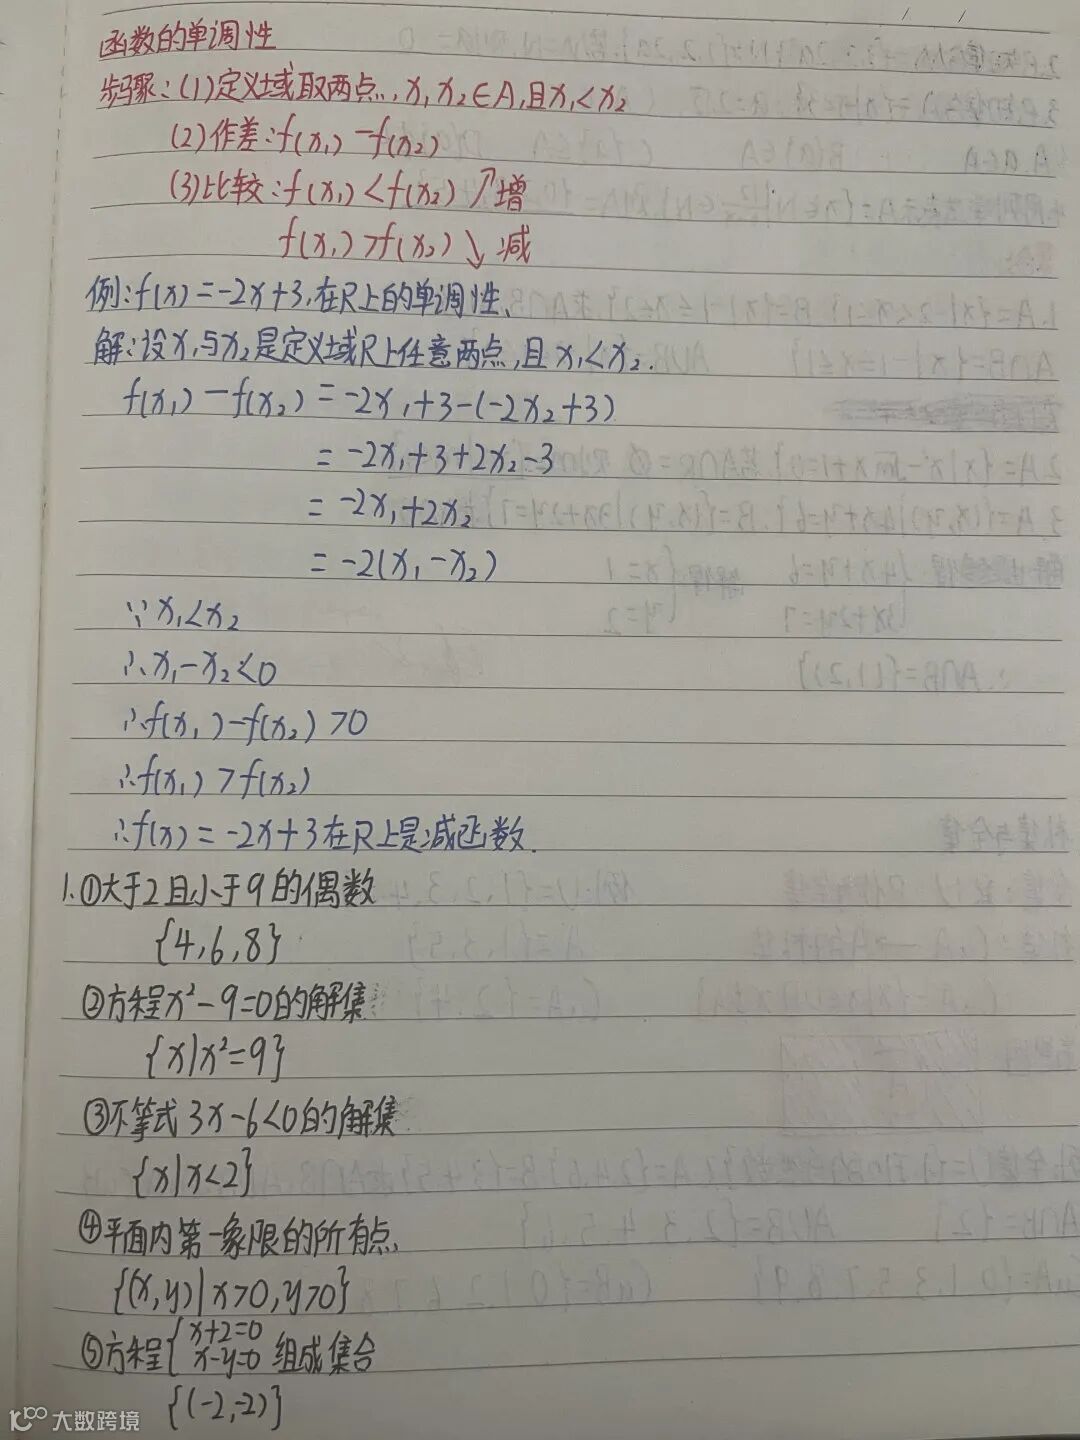 函数的单调性
步骤:(1)定义域取两点,x₁x₂∈A,且x₁<x₂
(2)作差:f(x₁)-f(x₂)
(3)比较:f(x₁)<f(x₂)↗增
f(x₁)>f(x₂)↘减
例:f(x)=-2x+3,在R上的单调性、
解:设x₁与x₂是定义域R上任意两点,且x₁<x₂.
f(x₁)-f(x₂)=-2x₁+3-(-2x₂+3)
=-2x₁+3+2x₂-3
=-2x₁+2x₂
=-2(x₁-x₂)
∵x₁<x₂
∴x₁-x₂<0
∴f(x₁)-f(x₂)>0
∴f(x₁)>f(x₂)
∴f(x)=-2x+3在R上是减函数.
1.①大于2且小于9的偶数
{4,6,8}
②方程x²-9=0的解集
{x|x²=9}
③不等式3x-6<0的解集
{x|x<2}
④平面内第一象限的所有点、
{(x,y)|x>0,y>0}
⑤方程{x+2=0
x-y=0 组成集合
{(-2,-2)}
大数跨境